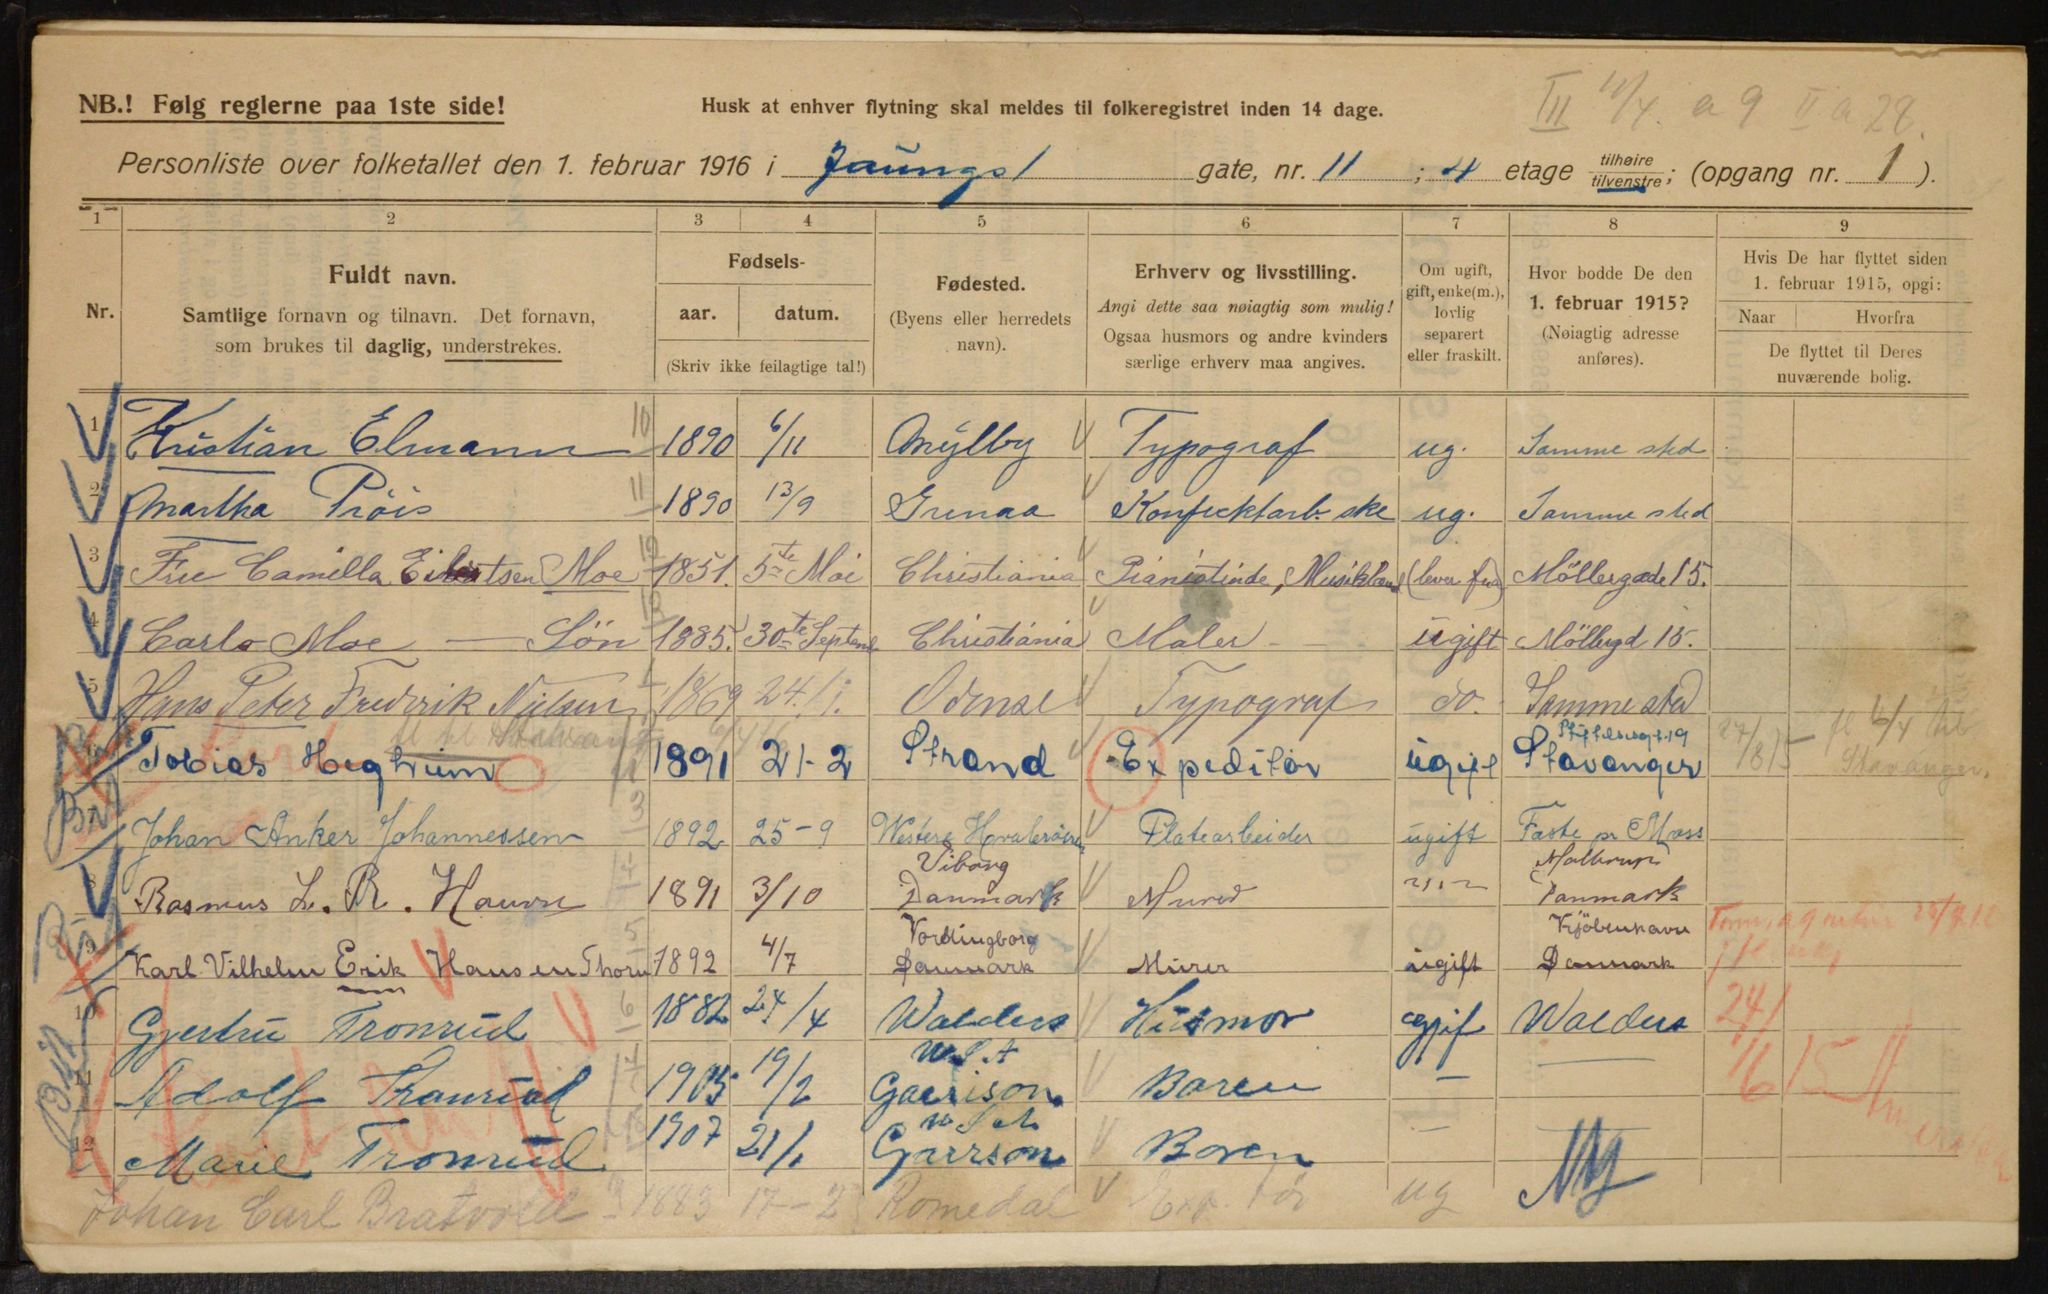 NB.! Følg reglerne paa 1ste side!
Husk at enhver flytning skal meldes til folkeregistret inden 14 dage.
III a 9 II a 28.
Personliste over folketallet den 1. februar 1916 i Jaungsl gate, nr. 11 ; 4 etage tilhøire tilvenstre; (opgang nr. 1).
1 2 3 4 5 6 7 8 9
Nr.
Fuldt navn.
Samtlige fornavn og tilnavn. Det fornavn,
som brukes til daglig, understrekes.
Fødsels-
aar. datum.
(Skriv ikke feilagtige tal!)
Fødested.
(Byens eller herredets
navn).
Erhverv og livsstilling.
Angi dette saa nøiagtig som mulig!
Ogsaa husmors og andre kvinders
særlige erhverv maa angives.
Om ugift,
gift, enke(m.),
lovlig
separert
eller fraskilt.
Hvor bodde De den
1. februar 1915?
(Nøiagtig adresse
anføres).
Hvis De har flyttet siden
1. februar 1915, opgi:
Naar Hvorfra
De flyttet til Deres
nuværende bolig.
1 Kristian Elmann 10 1890 6/11 Mylby Typograf ug. Samme sted
2 Martha Pröis 11 1890 13/9 Grenaa ug. Samme sted
3 Frue Camilla Moe 1851. 5te Mai Christiania Pianistinde, Möllergade 15.
4 Carlo Moe — Sön 1885. 30te Septemb Christiania Maler ugift Möllergd 15.
5 Hans Peter Fredrik Nielsen 1869 24/1. Odense Typograf do. Samme sted
6 Tobias Heghum 1891 21-2 Strand Expeditør ugift Stavanger 27/8 15 fl 6/4 til
Stavanger.
7 Johan Anker Johannessen 13 1892 25-9 Platearbeider ugift Moss
Viborg
8 Rasmus L. R. Hauvn 14 1891 3/10 Danmark Murer Danmark
Vordingborg Kjöbenhavn
9 Karl Vilhelm Erik Hansen Thorn 15 1892 4/7 Danmark Murer ugift Danmark
10 Gjertru Tronrud 16 1882 24/4 Walders Husmor gift Walders 24/
11 Adolf Tronrud 17 1905 19/2 Garrison Baren — 6 15
12 Marie Tronrud 1907 21/1 Garrson Boren — NY
Johan Carl Bratvold 1883 17-2 Romedal Exp. tör ug